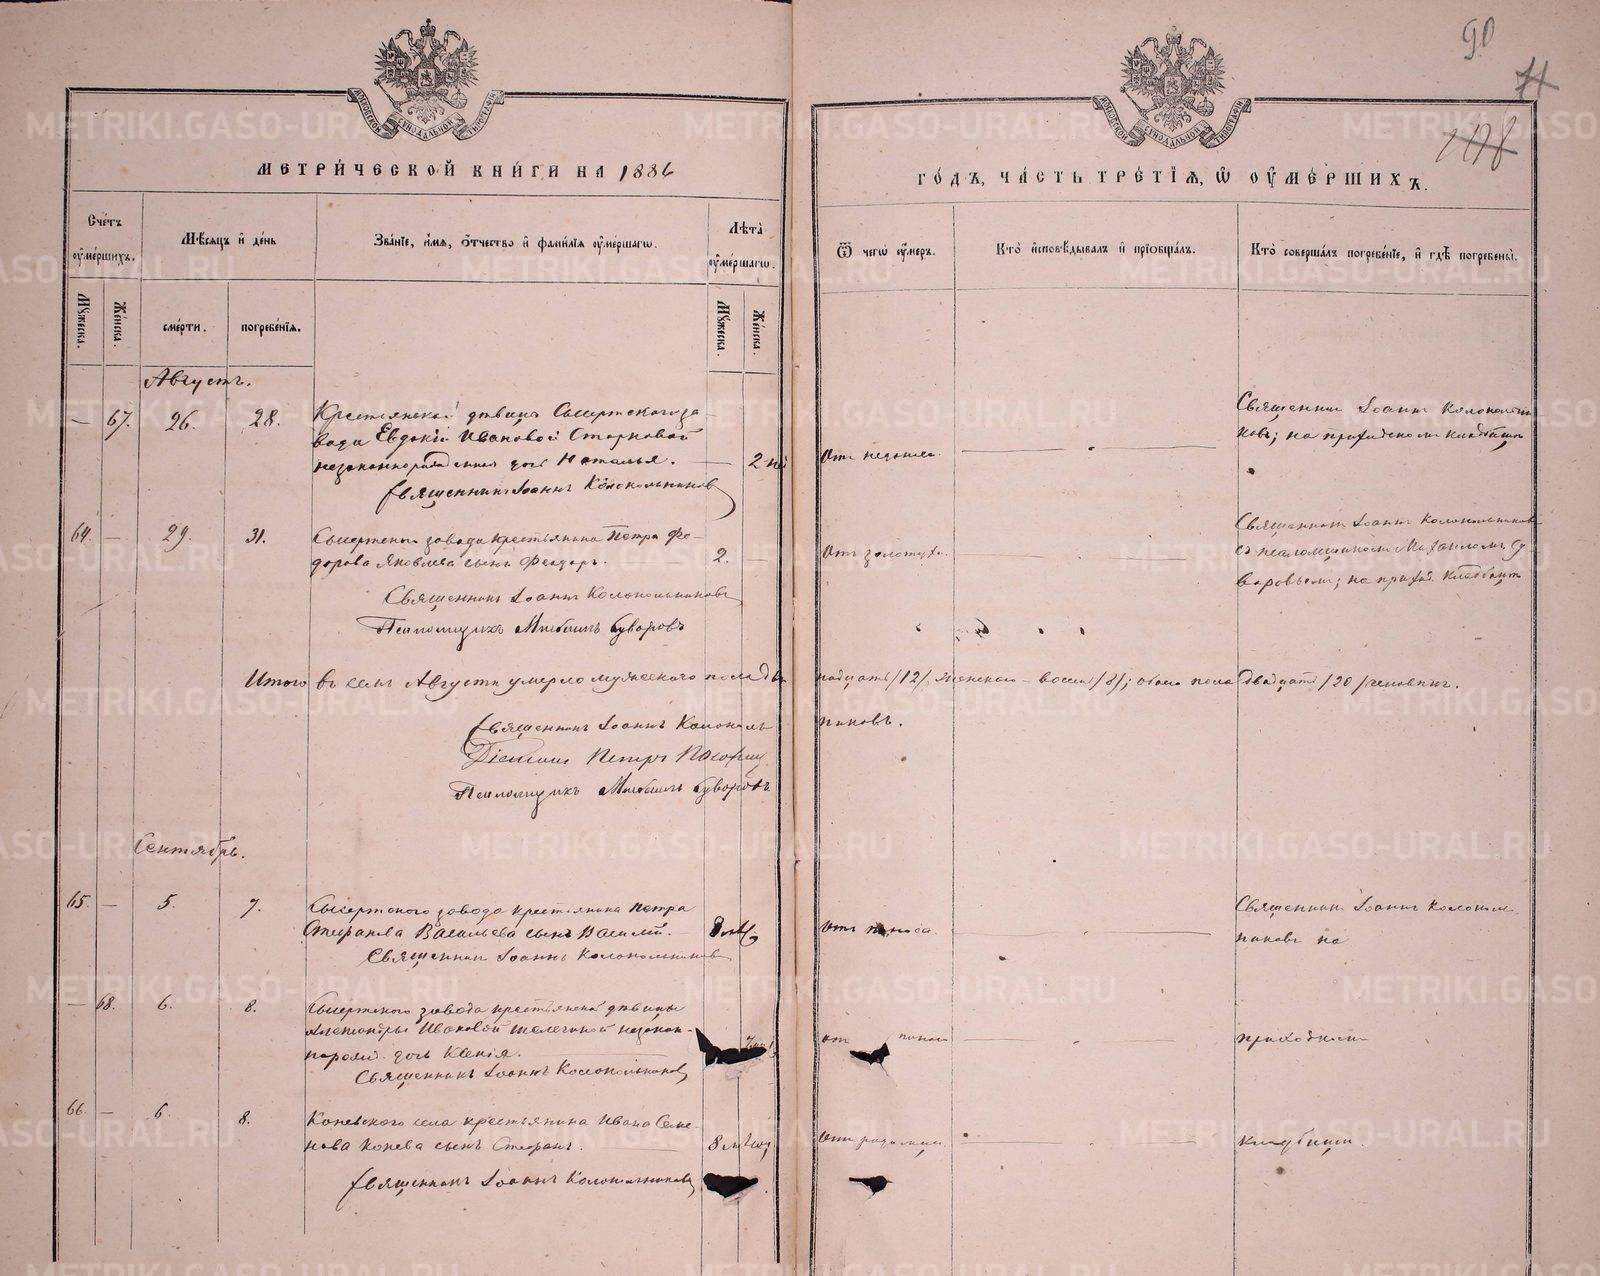 90
71
МЕТРИ́ЧЕСКОЙ КНИ́ГИ НА 1886
ГО́ДЪ, ЧА́СТЬ ТРЕ́ТІѦ, Ѽ ОУ҆МЕ́РШИХЪ.
Сче́тъ оу҆ме́ршихъ.
Мѣ́сѧцъ и҆ де́нь
Зва́нїе, и҆́мѧ, ѻ҆́тчество и҆ фами́лїѧ оу҆ме́ршагѡ.
Лѣ́та оу҆ме́ршагѡ.
Ѿ чегѡ̀ оу҆́меръ.
Кто̀ и҆сповѣ́дывалъ и҆ прїѡбща́лъ.
Кто̀ соверша́лъ погребе́нїе, и҆ гдѣ̀ погребены̀.
Мꙋ́жеска.
Же́нска.
сме́рти.
погребе́нїѧ.
Мꙋ́жеска.
Же́нска.
Августъ.
— 67. 26. 28.
Крестьянской дѣвицы Сысертскаго за-
вода Евдокіи Ивановой
незаконнорожденная дочь Наталья. — 2 нед
Священникъ Іоаннъ Колокольниковъ
Священникъ Іоаннъ Колокольни-
ковъ; на приходскомъ кладбищѣ
64. — 29. 31.
Сысертскаго завода крестьянина Петра Ѳе-
дорова Яковлева сынъ Ѳеодоръ. 2. —
Отъ золотухи.
Священникъ Іоаннъ Колокольниковъ
Псаломщикъ Михаилъ Суворовъ
Священникъ Іоаннъ Колокольниковъ
съ псаломщикомъ Михаиломъ Су-
воровымъ; на приход. кладбищѣ
Итого въ семъ Августѣ умерло мужескаго пола двѣ
надцать /12/, женскаго – восемь /8/; обоего пола двадцать /20/ человѣкъ.
Священникъ Іоаннъ Колоколь
никовъ.
Діаконъ Петръ
Псаломщикъ Михаилъ Суворовъ
Сентябрь.
65. — 5. 7.
Сысертскаго завода крестьянина Петра
Стефанова Васильева сынъ Василій.
отъ поноса.
Священникъ Іоаннъ Колокольниковъ
Священникъ Іоаннъ Колоколь
никовъ на
— 68. 6. 8.
Сысертскаго завода крестьянской дѣвицы
Александры Ивановой незакон-
норожд. дочь Ксенія.
отъ поноса
Священникъ Іоаннъ Колокольниковъ
приходскомъ
66. — 6. 8.
Коневскаго села крестьянина Ивана Семе-
нова Конева сынъ Стефанъ.
Священникъ Іоаннъ Колокольниковъ
кладбищѣ.
METRIKI.GASO-URAL.RU